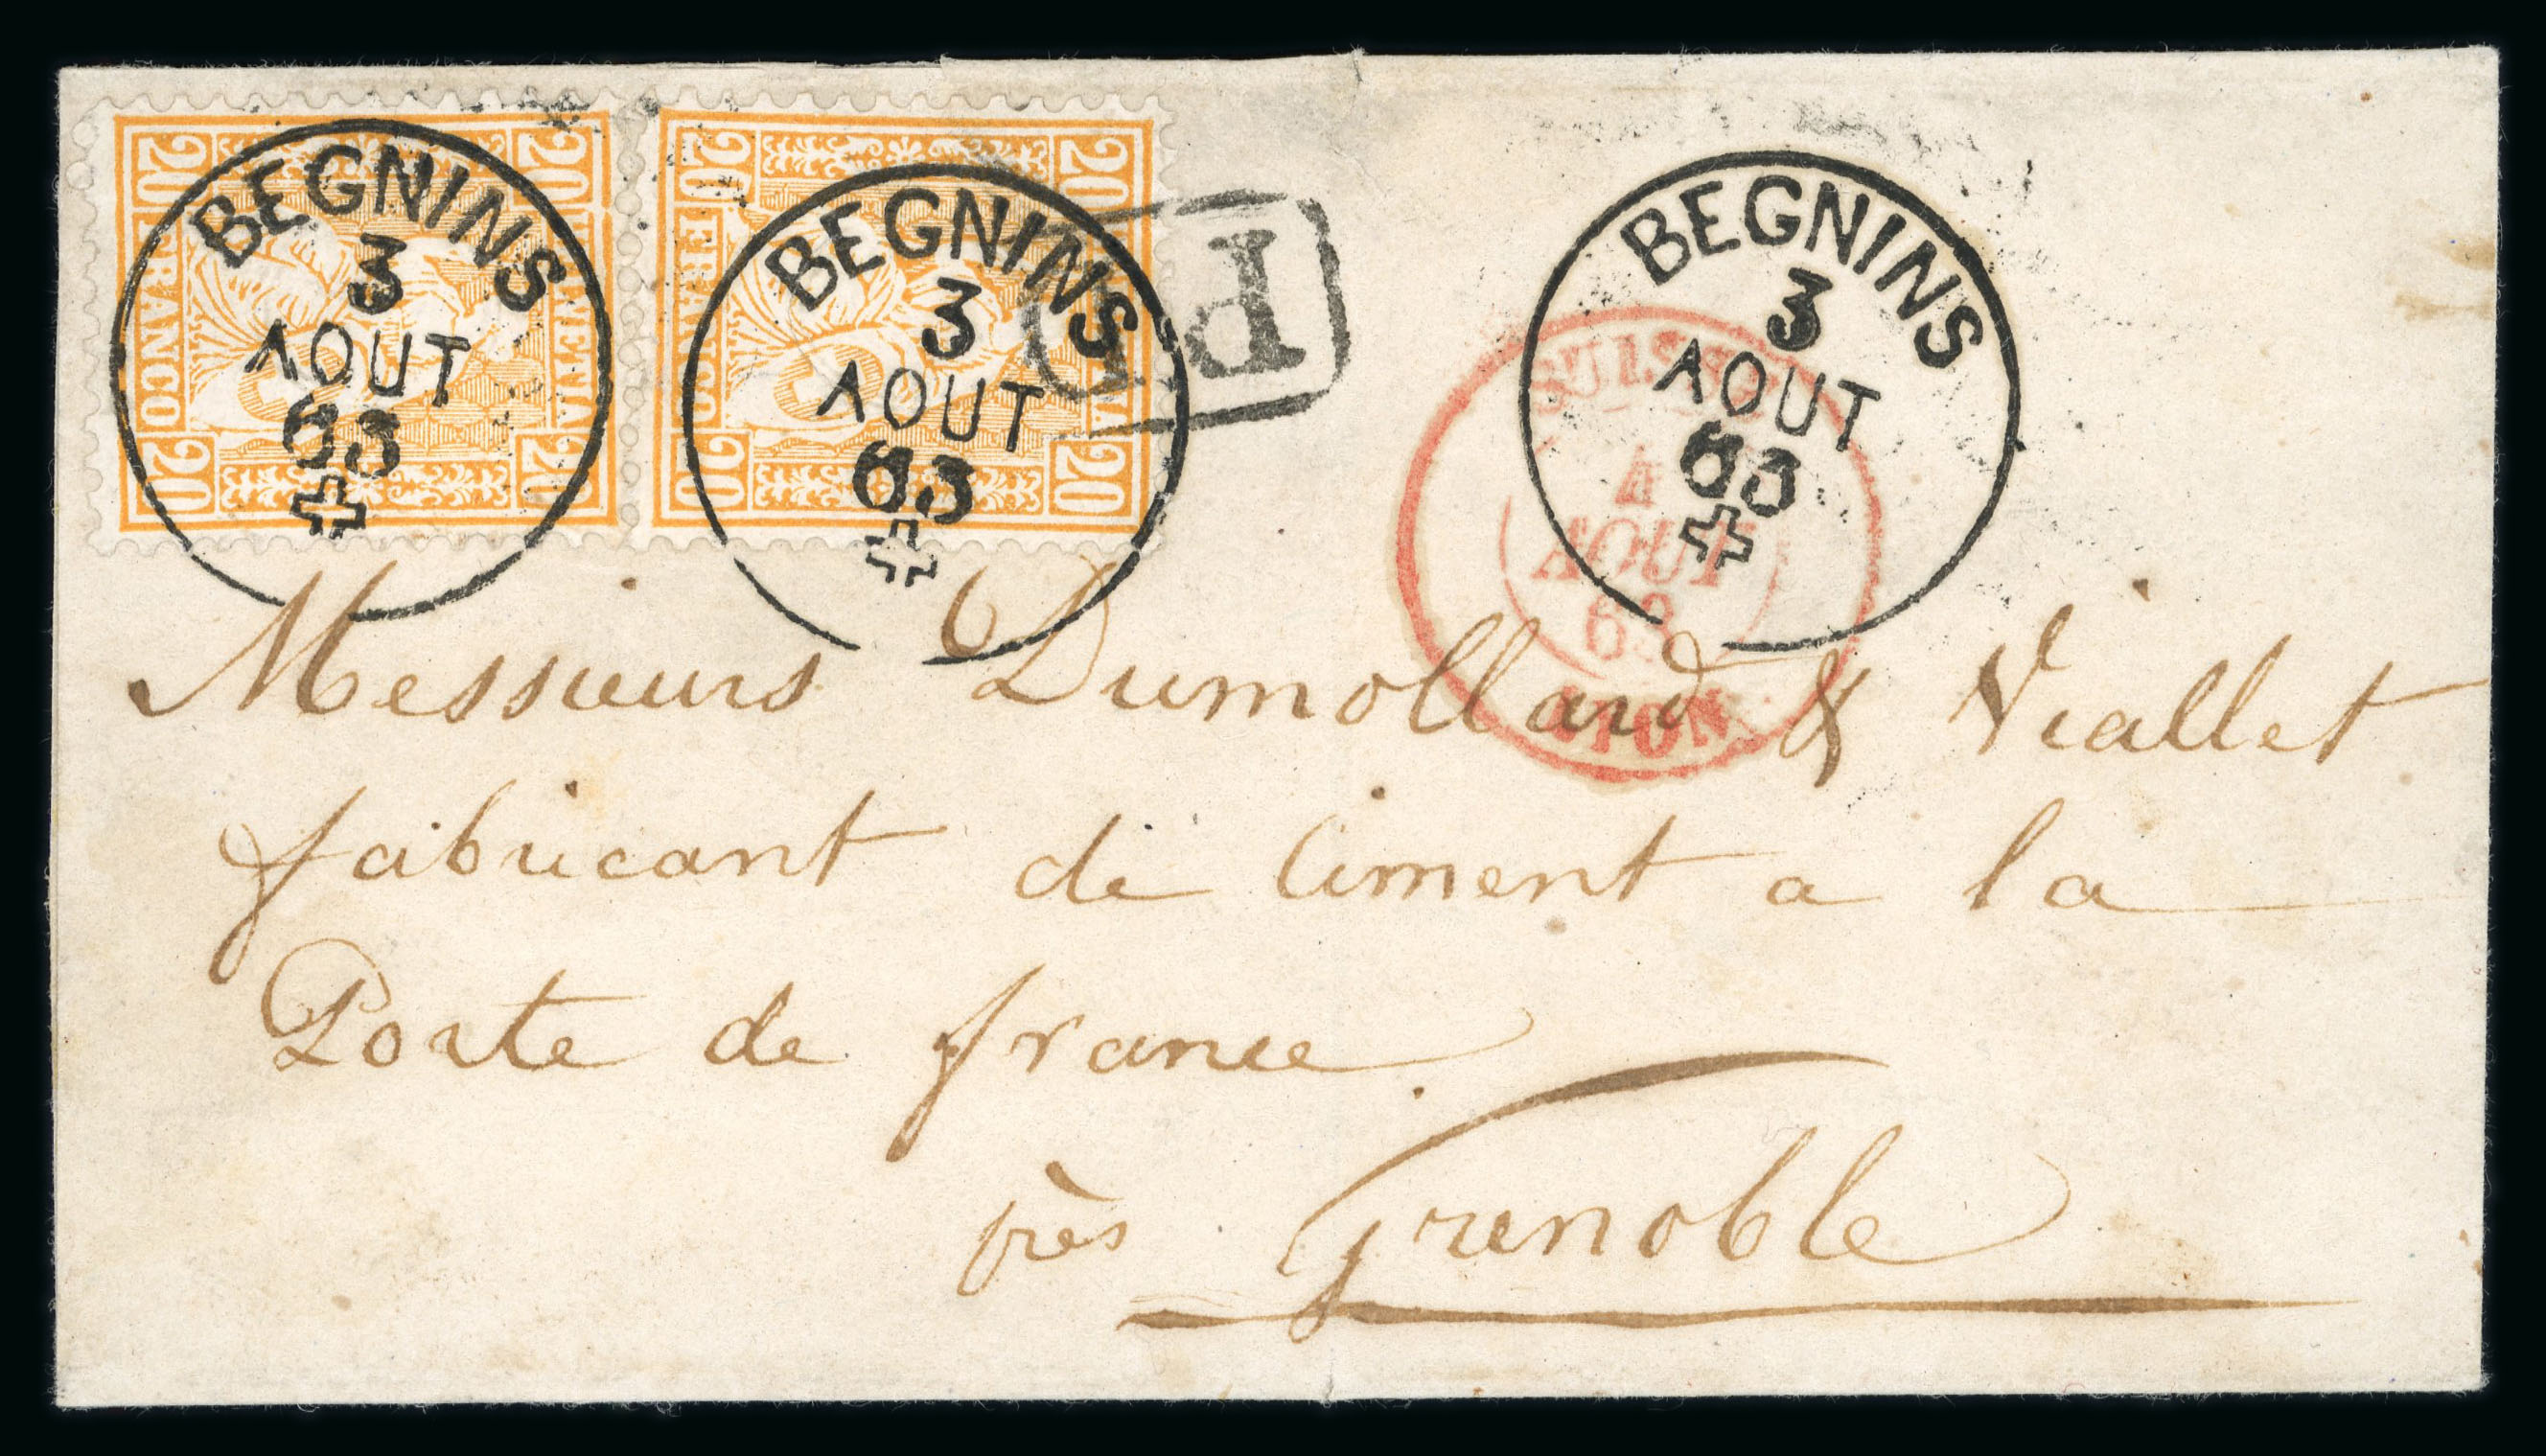 20 20
FRANCO HELVETIA
20 20
20 20
FRANCO
20 20
BEGNINS
3
AOUT
63
BEGNINS
3
AOUT
63
PD
BEGNINS
3
AOUT
63
SUISSE
4
AOUT
63
LYON
Messieurs Dumollard & Viallet
fabricant de Ciment a la
Porte de france
près Grenoble